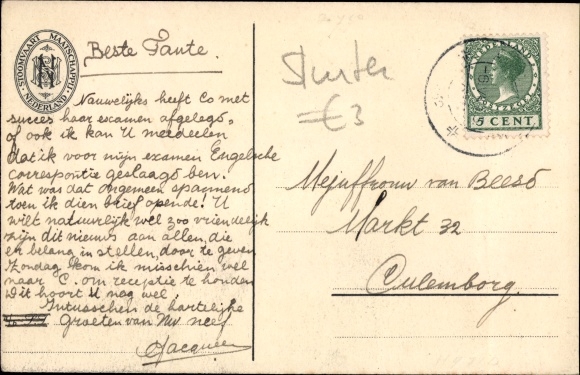 STOOMVAART MAATSCHAPPIJ NEDERLAND
Beste Tante.
Nauwelijks heeft Co met
succes haar examen afgelegd,
of ook ik kan U mededeelen
dat ik voor mijn examen Engelsche
correspontie geslaagd ben.
Wat was dat ongemeen spannend
toen ik dien brief opende! U
wilt natuurlijk wel zoo vriendelijk
zijn dit nieuws aan allen, die
er belang in stellen, door te geven
Zondag kom ik misschien wel
naar C. om receptie te houden
Dit hoort U nog wel,
Intusschen de hartelijke
Groeten van Uw neef
NEDERLAND
5 CENT
€ 3
Mejuffrouw van Beest
Markt 32
Culemborg.